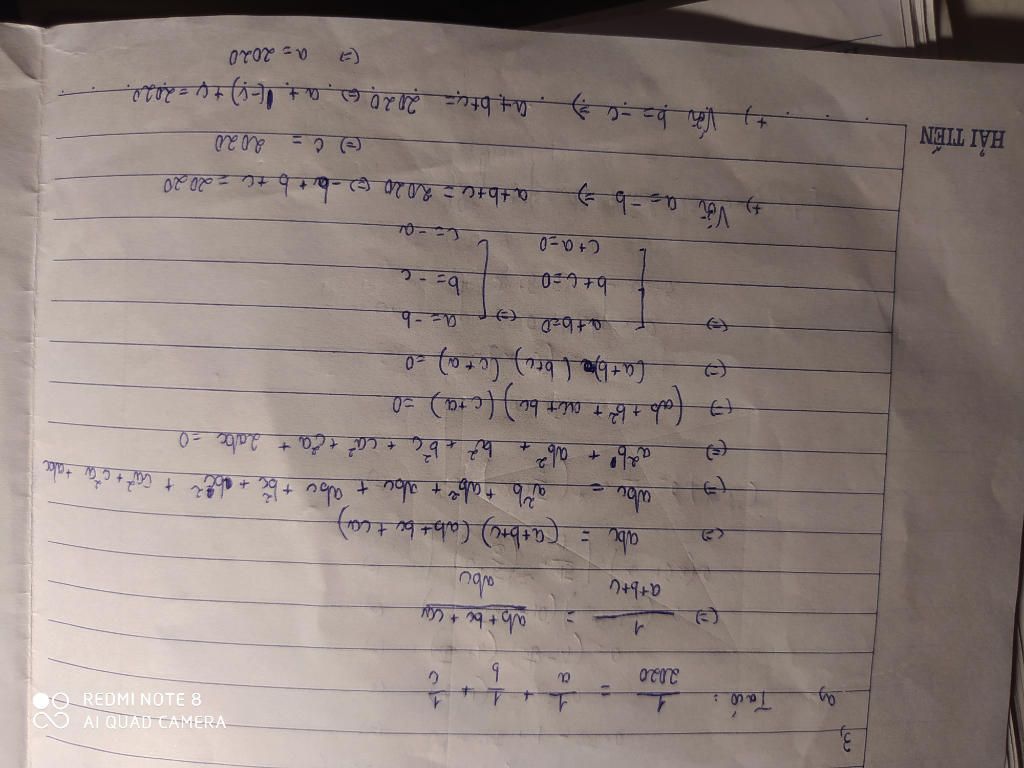 3,
a, Ta có: 1/2020 = 1/a + 1/b + 1/c
(=) 1/a+b+c = ab+bc+ca/abc
(=) abc = (a+b+c) (ab+bc+ca)
(=) abc = a²b + ab² + abc + abc + b²c + bc² + ca² + c²a + abc
(=) a²b + ab² + bc² + b²c + ca² + c²a + 2abc = 0
(=) (ab + b² + ac + bc) (c+a) = 0
(=) (a+b) (b+c) (c+a) = 0
(=) [ a+b=0 (=) [ a = -b
b+c=0 b = -c
c+a=0 c = -a
+) Với a = -b =) a+b+c = 2020 (=) -b + b + c = 2020
(=) c = 2020
+) Với b = -c =) a+b+c = 2020 (=) a + (-c) + c = 2020
(=) a = 2020
HẢI TIẾN
REDMI NOTE 8
AI QUAD CAMERA